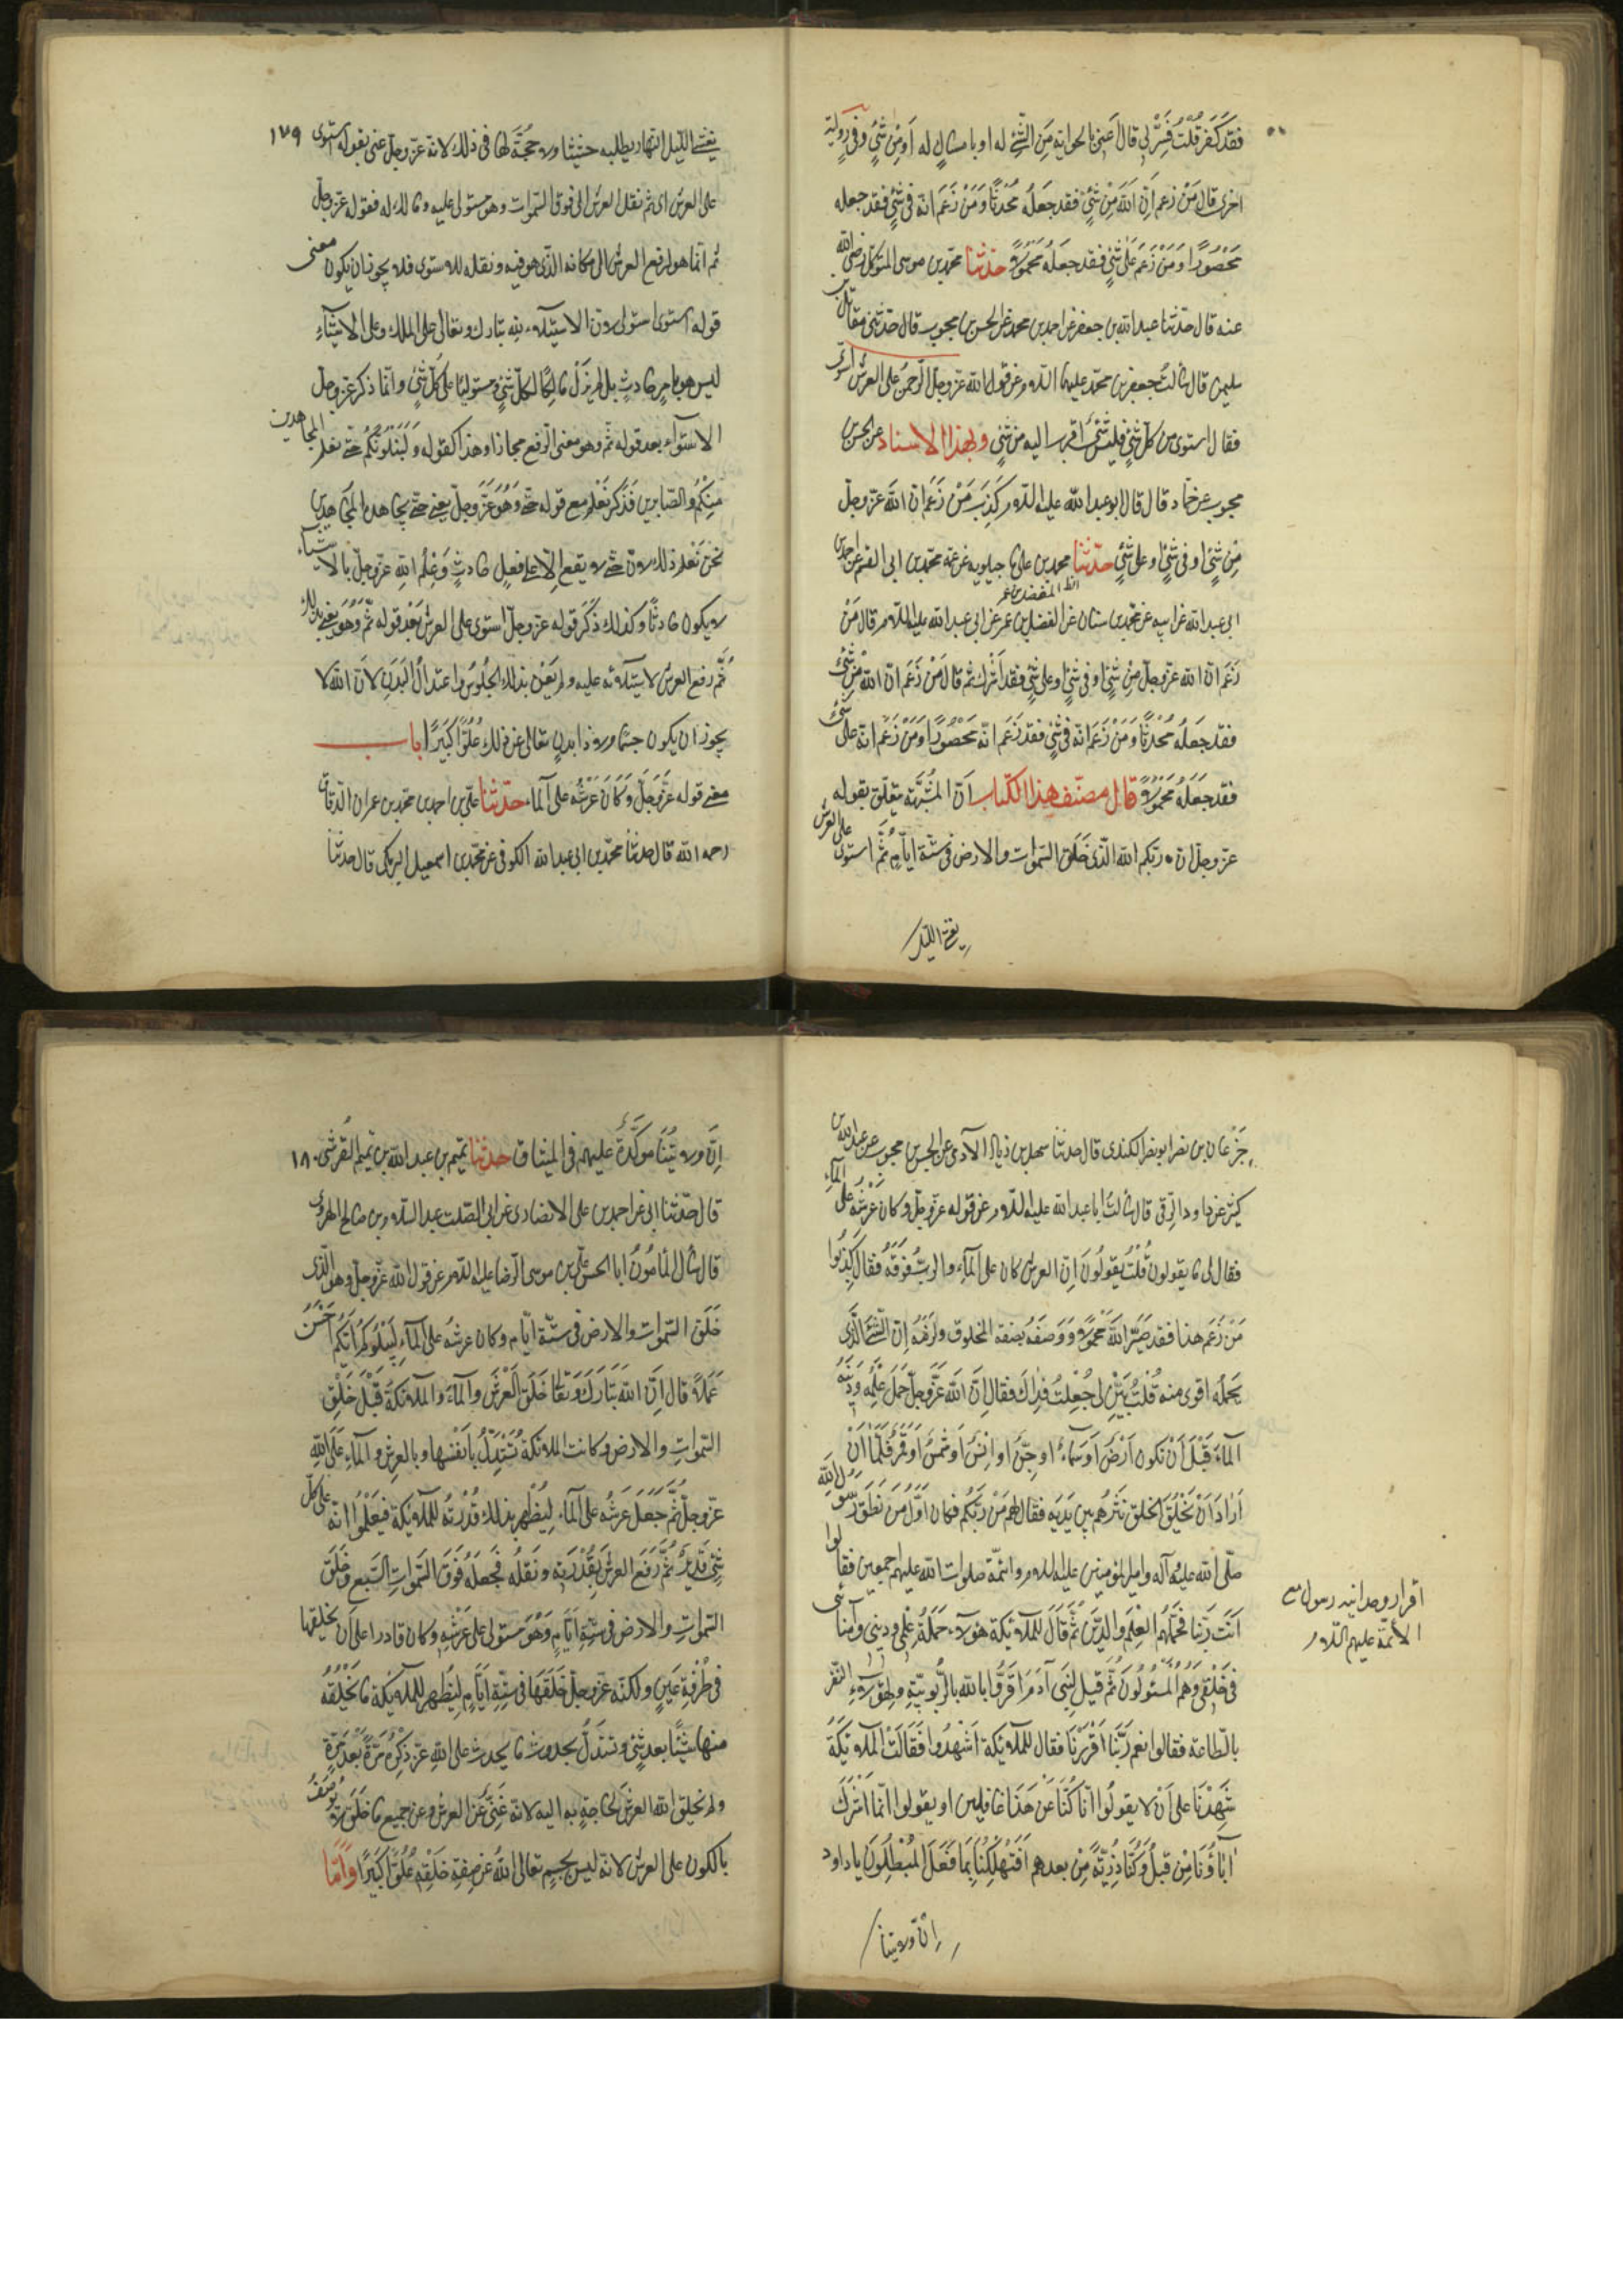 فقد كَفَرَ قُلْتُ فَسِّرْ لى قالَ اَعنى بالحواية مِنَ الشّئِ له او بامساكٍ له اَو مِنْ شَئٍ وفى رواية
اخرى قال مَنْ زعم اَنّ اللّه مِنْ شَئٍ فقد جعَلَهُ مُحْدثًا وَمَنْ زَعَمَ انّه فى شئٍ فقد جعله
مَحْصُورًا وَمَنْ زَعَمَ عَلى شَئٍ فقد جعَلَه مَحْمُولًا حدّثنا محمّد بن موسى المتوكّل رضى اللّه
عنه قال حدّثنا عبد اللّه بن جعفر عن احمد بن محمد عن الحسن بن محبوب قال حدّثنى مقاتل بن
سليمن قال سَالتُ جعفر بن محمّد عليهما السّلام عن قول اللّه عزّ وجلّ الرّحمنُ على العرش استوى
فقال استوى من كلّ شئٍ فليس شئٌ اقرب اليه من شئٍ وبهذا الاسناد عن الحسن بن
محبوب عن حمّاد قال قال ابو عبد اللّه عليه السّلام كَذِبَ مَنْ زَعَمَ انّ اللّهَ عزّ وجلّ
مِنْ شَئٍ او فى شَئٍ او على شَئٍ حدّثنا محمد بن على ماجيلويه عن عمّه محمّد بن ابى القسم عن احمد بن
ابى عبد اللّه عن ابيه عن محمّد بن سنان عن المفضل بن عمر عن ابى عبد اللّه عليه السّلام قال مَنْ
زَعَمَ انّ اللّه عزّ وجلّ مِنْ شَئٍ او فى شَئٍ او على شَئٍ فقد اَشْرَكَ ثمّ قال مَنْ زَعَمَ انّ اللّه مِنْ شَئٍ
فقد جعَلَهُ مُحْدثًا وَمَنْ زَعَمَ انّه فى شئٍ فقد زَعَم انّه مَحْصُورًا وَمَنْ زَعَمَ انّه على شَئٍ
فقد جعَلَهُ مَحْمُولًا قال مصنّف هذا الكتاب اَنّ المُشَبِّهَة يتعلّق بقوله
عزّ وجلّ انّ ربّكم اللّه الّذى خَلَقَ السّموات والارض فى ستّة ايّامٍ ثُمَّ استوى على العرش
يغشى الليل
١٧٩
يغشى الّليل النّهار يطلبه حثيثا ولا حجّةَ لها فى ذلك لانّه عزّ وجلّ عنى بقوله ثمّ استوى
على العرش اى ثم نقل العرش الى فوق السّموات وهو مستولى عليه ومالك له فقوله عزّ وجلّ
ثم انّما هو لرفع العرش الى مكانه الّذى هو فيه ونقله للاستوى فلا يجوز ان يكون معنى
قوله استوى استولى لانّ الاستيلاء للّه تبارك وتعالى على الملك وعلى الاشياءِ
ليس هو بامرٍ حادثٍ بل لم يَزَلْ مالِكًا لكلّ شئٍ ومستوليًا على كلّ شئٍ وانّما ذكر عزّ وجلّ
الاستوآء بعد قوله ثمّ وهو معنى الرّفع مجازا وهذا كقوله وَلَنَبْلُوَنَّكُمْ حتّى نعلم المجاهدين
مِنْكُمْ والصّابرين فَذَكَرَ نَعْلَم مع قوله حتّى وَهُوَ عَزَّ وجلّ يعنى حتّى يجاهد المجاهدين
نحن نَعْلَم ذلك لانّ حتّى لا يقع الّا على فعلٍ حادثٍ وَعِلْمُ اللّهِ عزّ وجلّ بالاشياء
لا يكون حادثًا وكذلك ذَكَرَ قوله عزّ وجلّ استوى على العرش بَعْدَ قوله ثُمَّ وَهُوَ يعنى بذلك
ثُمَّ رفع العرش لاستيلآئه عليه ولم يَعْنِ بذلك الجُلُوسَ واعتدالَ البَدَنِ لاَنّ اللّه لا
يجوز ان يكون جسمًا ولا ذا بدنٍ تعالى عن ذلك عُلُوًّا كَبيرًا باب
معنى قوله عَزَّ وَجَلَّ وَكَانَ عَرْشُهُ على المآء حدّثنا علىّ بن احمد بن محمّد بن عمران الدّقاق
رحمه اللّه قال حدثنا محمّد بن ابى عبد اللّه الكوفى عن محمّد بن اسمعيل البرمكى قال حدثنا
جَزْعان بن نصر ابو نصر الكندى قال حدثنا سهل بن زياد الآدمى عن الحسن بن محبوب عن عبد اللّه بن
كثير عن داود الرّقى قال سالتُ ابا عبد اللّه عليه السّلام عن قوله عزّ وجلّ وكان عَرْشُهُ على المآءِ
فقال لى ما يقولون قُلْتُ يَقُولُونَ اِنّ العرش كان على المآءِ والربُّ فَوْقَهُ فقال كَذِبُوا
مَنْ زَعَمَ هذا فقد صَيَّرَ اللّهَ مَحْمُولًا وَوَصَفَهُ بصفة المخلوق ولَزِمَهُ اِنّ الشَّئَ الّذى
يَحْمِلُه اقوى منه قُلتُ بَيِّنْ لى جُعِلتُ فِدَاكَ فقال اِنّ اللّه عَزَّ وجلّ حَمَّلَ عِلْمَه وَدينَهُ
المآءَ قَبْلَ اَنْ تكون اَرْضٌ اَو سَمَآءٌ او جِنٌّ او اِنْسٌ اَو شَمْسٌ اَو قَمَرٌ فَلَمّا اَنْ
اَرادَ اَنْ يَخْلُقَ الخلق نَثَرَهُمْ بين يَدَيه فقال لهم مَنْ رَبُّكم فكان اَوَّلُ مَنْ نَطَقَ رَسُولُ اللّهِ
صلّى اللّه عليه وآله وامير المؤمنين عليه السّلام والائمّة صلوات اللّه عليهم اجمعين فقالوا
اَنتَ رَبّنا فَحَمَّلَهُمُ العِلْمَ والدّينَ ثُمَّ قالَ للملائِكة هولآءِ حَمَلَةُ عِلْمى ودينى واُمنائى
فى خَلْقى وَهُمُ المسْئُولُونَ ثُمَّ قيل لِبَنى آدَمَ اَقِرُّوا باللّه بالرّبُوبيّةِ ولهؤلآءِ النّفر
بالطّاعة فقالوا نعم رَبَّنا اَقْرَرْنا فقال للملآئِكة اَشْهِدُوا فَقَالَت المَلآئِكَةُ
شَهِدْنا على اَنْ لا يقولُوا انّا كُنّا عَنْ هَذَا غافلين او يقولوا انّما اَشْرَكَ
آباؤُنا مِنْ قَبلُ وَكُنّا ذُرّيّةً مِنْ بعدهم اَفَتُهْلِكُنا بِمَا فَعَلَ المُبْطِلُونَ يا داود
انّ ولايتنا
اقرار وحدانيه رسول ص
الائمّة عليهم السّلام
١٨٠
اِنّ ولايَتَنا مُوكَّدَةٌ عليهم فى الميثاق حدثنا تميم بن عبد اللّه بن تميم القرشى
قال حدّثنا ابى عن احمد بن على الانصارى عن ابى الصّلت عبد السّلام بن صالح الهروى
قال سأل المأمُونُ ابا الحسن علىّ بن موسى الرّضا عليه السّلام عن قول اللّه عزّ وجلّ وهو الّذى
خَلَقَ السّموات والارض فى ستّة ايّام وكان عرشُه على المآءِ لِيَبْلُوَكُمْ اَيُّكُمْ اَحْسَنُ
عَمَلًا قال اِنّ اللّهَ تَبَارَكَ وَتعالى خَلَقَ العَرْشَ والمآءَ والملائكةَ قَبْلَ خَلْقِ
السّمواتِ والارض وكانت الملائكةُ تَسْتَدِلُّ باَنفُسها وبالعرش والمآءِ عَلَى اللّهِ
عزّ وجلّ ثُمَّ جَعَلَ عَرشَهُ على المآءِ لِيُظْهِرَ بذلك قُدْرَتَهُ للملآئِكة فيَعْلَمُوا انّه على كلّ
شَئٍ قَديرٌ ثُمَّ رَفَعَ العرشَ بِقُدْرَتِهِ ونَقَلَهُ فجَعَلَهُ فَوْقَ السّمواتِ السَّبعِ وخَلَقَ
السّمواتِ والارض فى ستّةِ ايّامٍ وَهُوَ مستولى على عَرْشِهِ وكان قادرا على اَن يخلقها
فى طَرْفةِ عَينٍ ولكنّه عزّ وجلّ خَلَقَها فى ستّةِ ايّامٍ لِيُظْهِرَ للملآئِكة ما يَخْلُقُهُ
منها شَيْئًا بعد شَئٍ وتستدلّ بحدوث ما يحدث على اللّهِ عزّ ذِكْرُهُ مَرّةً بَعْدَ مَرّةٍ
ولم يخلق اللّه العرشَ لحاجةٍ به اليه لانّه غَنِىٌّ عَن العرش وعن جميع ما خَلَقَ لا يُوصَفُ
بالكون على العرش لانّه ليس بجسمٍ تعالى اللّهُ عن صِفةِ خَلْقِهِ عُلُوًّا كَبيرًا وَاَمّا